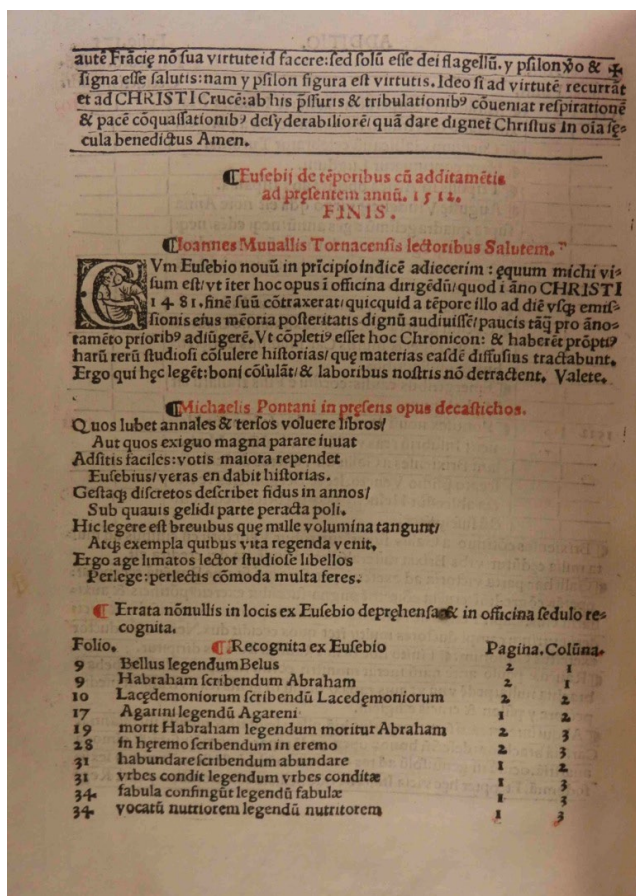 autē Frācię nō sua virtute id facere: sed solū esse dei flagellū. y psilon ꝟo & ✠
signa esse salutis: nam y psilon figura est virtutis. Ideo si ad virtutē recurrāt
et ad CHRISTI Crucē: ab his p̄ssuris & tribulationibꝰ cōueniat respirationē
& pacē cōquassationibꝰ desyderabiliorē/ quā dare dignet̄ Christus in oīa sę-
cula benedictus Amen.
¶Eusebij de tēporibus cū additamētis
ad pręsentem annū. 1512.
FINIS.
¶Ioannes Muuallis Tornacensis lectoribus Salutem.
CVm Eusebio nouū in prīcipio indicē adiecerim: ęquum michi vi-
sum est/ vt īter hoc opus ī officina dirigēdū/ quod ī āno CHRISTI
1481. finē suū cōtraxerat/ quicquid a tēpore illo ad diē vsq; emis-
sionis eius mēoria posteritatis dignū audiuissē/ paucis tāq̄ pro āno-
tamēto prioribꝰ adiūgerē. Vt cōpletiꝰ esset hoc Chronicon: & haberēt prōptiꝰ
harū rerū studiosi cōsulere historias/ quę materias easdē diffusius tractabunt.
Ergo qui hęc legēt: boni cōsulāt/ & laboribus nostris nō detractent. Valete.
¶Michaelis Pontani in pręsens opus decastichos.
Quos lubet annales & tersos voluere libros/
Aut quos exiguo magna parare iuuat
Adsitis faciles: votis maiora rependet
Eusebius/ veras en dabit historias.
Gestaq; discretos describet fidus in annos/
Sub quauis gelidi parte peracta poli.
Hic legere est breuibus quę mille volumina tangunt/
Atq; exempla quibus vita regenda venit.
Ergo age limatos lector studiose libellos
Perlege: perlectis cōmoda multa feres.
¶ Errata nōnullis in locis ex Eusebio depręhensa & in officina sedulo re-
cognita.
Folio. ¶Recognita ex Eusebio Pagina. Colūna.
9 Bellus legendum Belus 2 1
9 Habraham scribendum Abraham 2 1
10 Lacędemoniorum scribendū Lacedęmoniorum 2 2
17 Agarini legendū Agareni 1 2
19 morit Habraham legendum moritur Abraham 2 3
28 in hęremo scribendum in eremo 2 3
31 habundare scribendum abundare 1 2
31 vrbes condit legendum vrbes conditæ 1 3
34 fabula confingūt legendū fabulæ 1 3
34 vocatū nutriorem legendū nutritorem 1 3